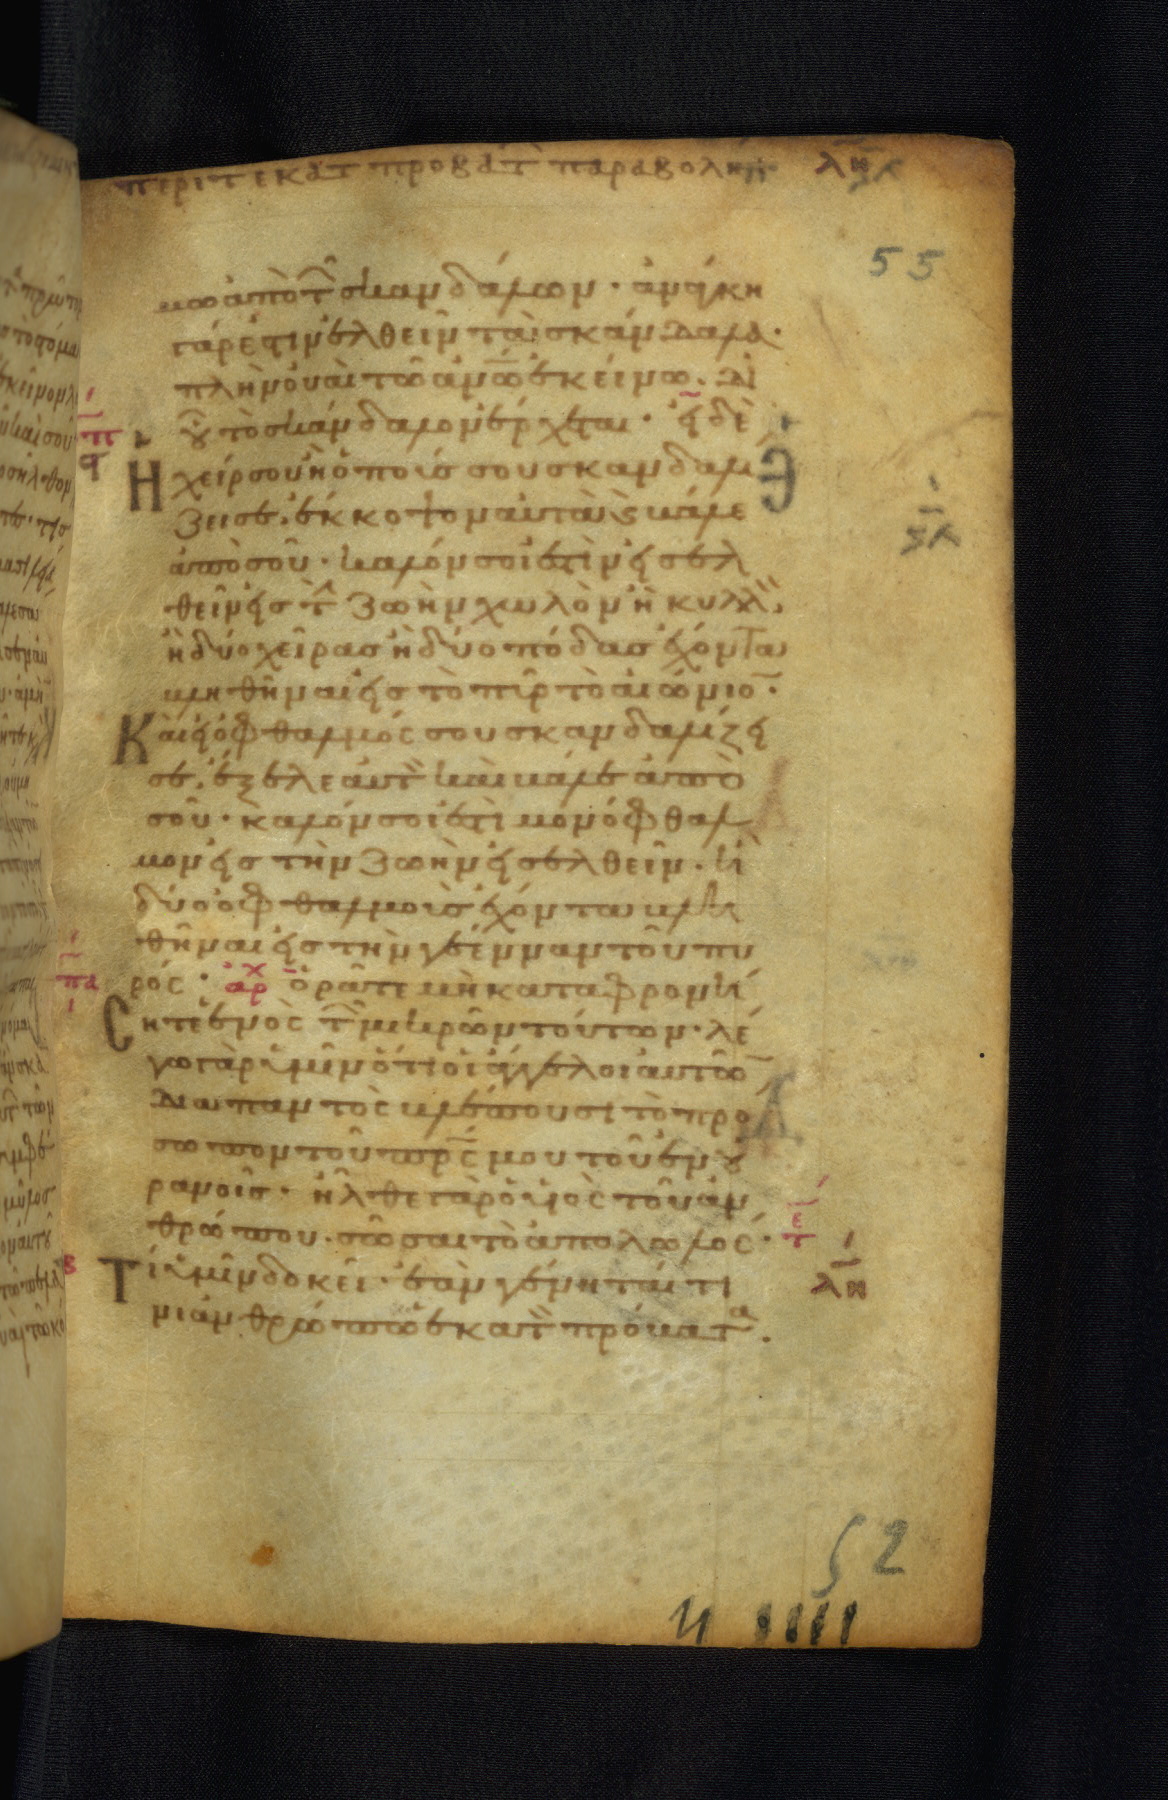 περι τ εκατ προβατ παραβολη λη
55
μω ἀπὸ τ σκανδάλων · ἀνάγκη
γάρ ἐστιν ἐλθεῖν τὰ σκάνδαλα ·
πλὴν οὐαὶ τῶ ἀνω ἐκείνω · δι
οὗ τὸ σκάνδαλον ἔρχεται · εἰ δὲ
ἡ χείρ σου ἢ ὁ ποῦς σου σκανδαλί
ζει σε · ἔκκοψον αὐτὰ κ βάλε
ἀπὸ σοῦ · καλόν σοι ἐστὶν εἰσελ
θεῖν εἰς τ ζωὴν χωλὸν ἢ κυλλ
ἢ δύο χεῖρας ἢ δύο πόδας ἔχοντα
βληθῆναι εἰς τὸ πῦρ τὸ αἰώνιο ·
Καὶ εἰ ὁ ὀφθαλμός σου σκανδαλίζει
σε · ἔξελε αὐτ καὶ βάλε ἀπὸ
σοῦ · καλόν σοι ἐστὶ μονόφθαλ
μον εἰς τὴν ζωὴν εἰσελθεῖν · ἢ
δύο ὀφθαλμοὺς ἔχοντα βλη
θῆναι εἰς τὴν γέενναν τοῦ πυ
ρός · αρχ ὁρᾶτε μὴ καταφρονή
Σητε ἑνὸς τ μικρῶν τούτων · λέ
γω γὰρ ὑμῖν ὅτι οἱ ἄγγελοι αὐτῶ
διαπαντὸς βλέπουσι τὸ πρό
σωπον τοῦ πρς μου τοῦ ἐν οὐ
ρανοῖς · ἦλθε γὰρ ὁ υἱὸς τοῦ ἀν
θρώπου · σῶσαι τὸ ἀπολωλός ·
Τί ὑμῖν δοκεῖ · ἐὰν γένηταί τι
νι ἀνθρώπω ἑκατ πρόβατα .
λη
52